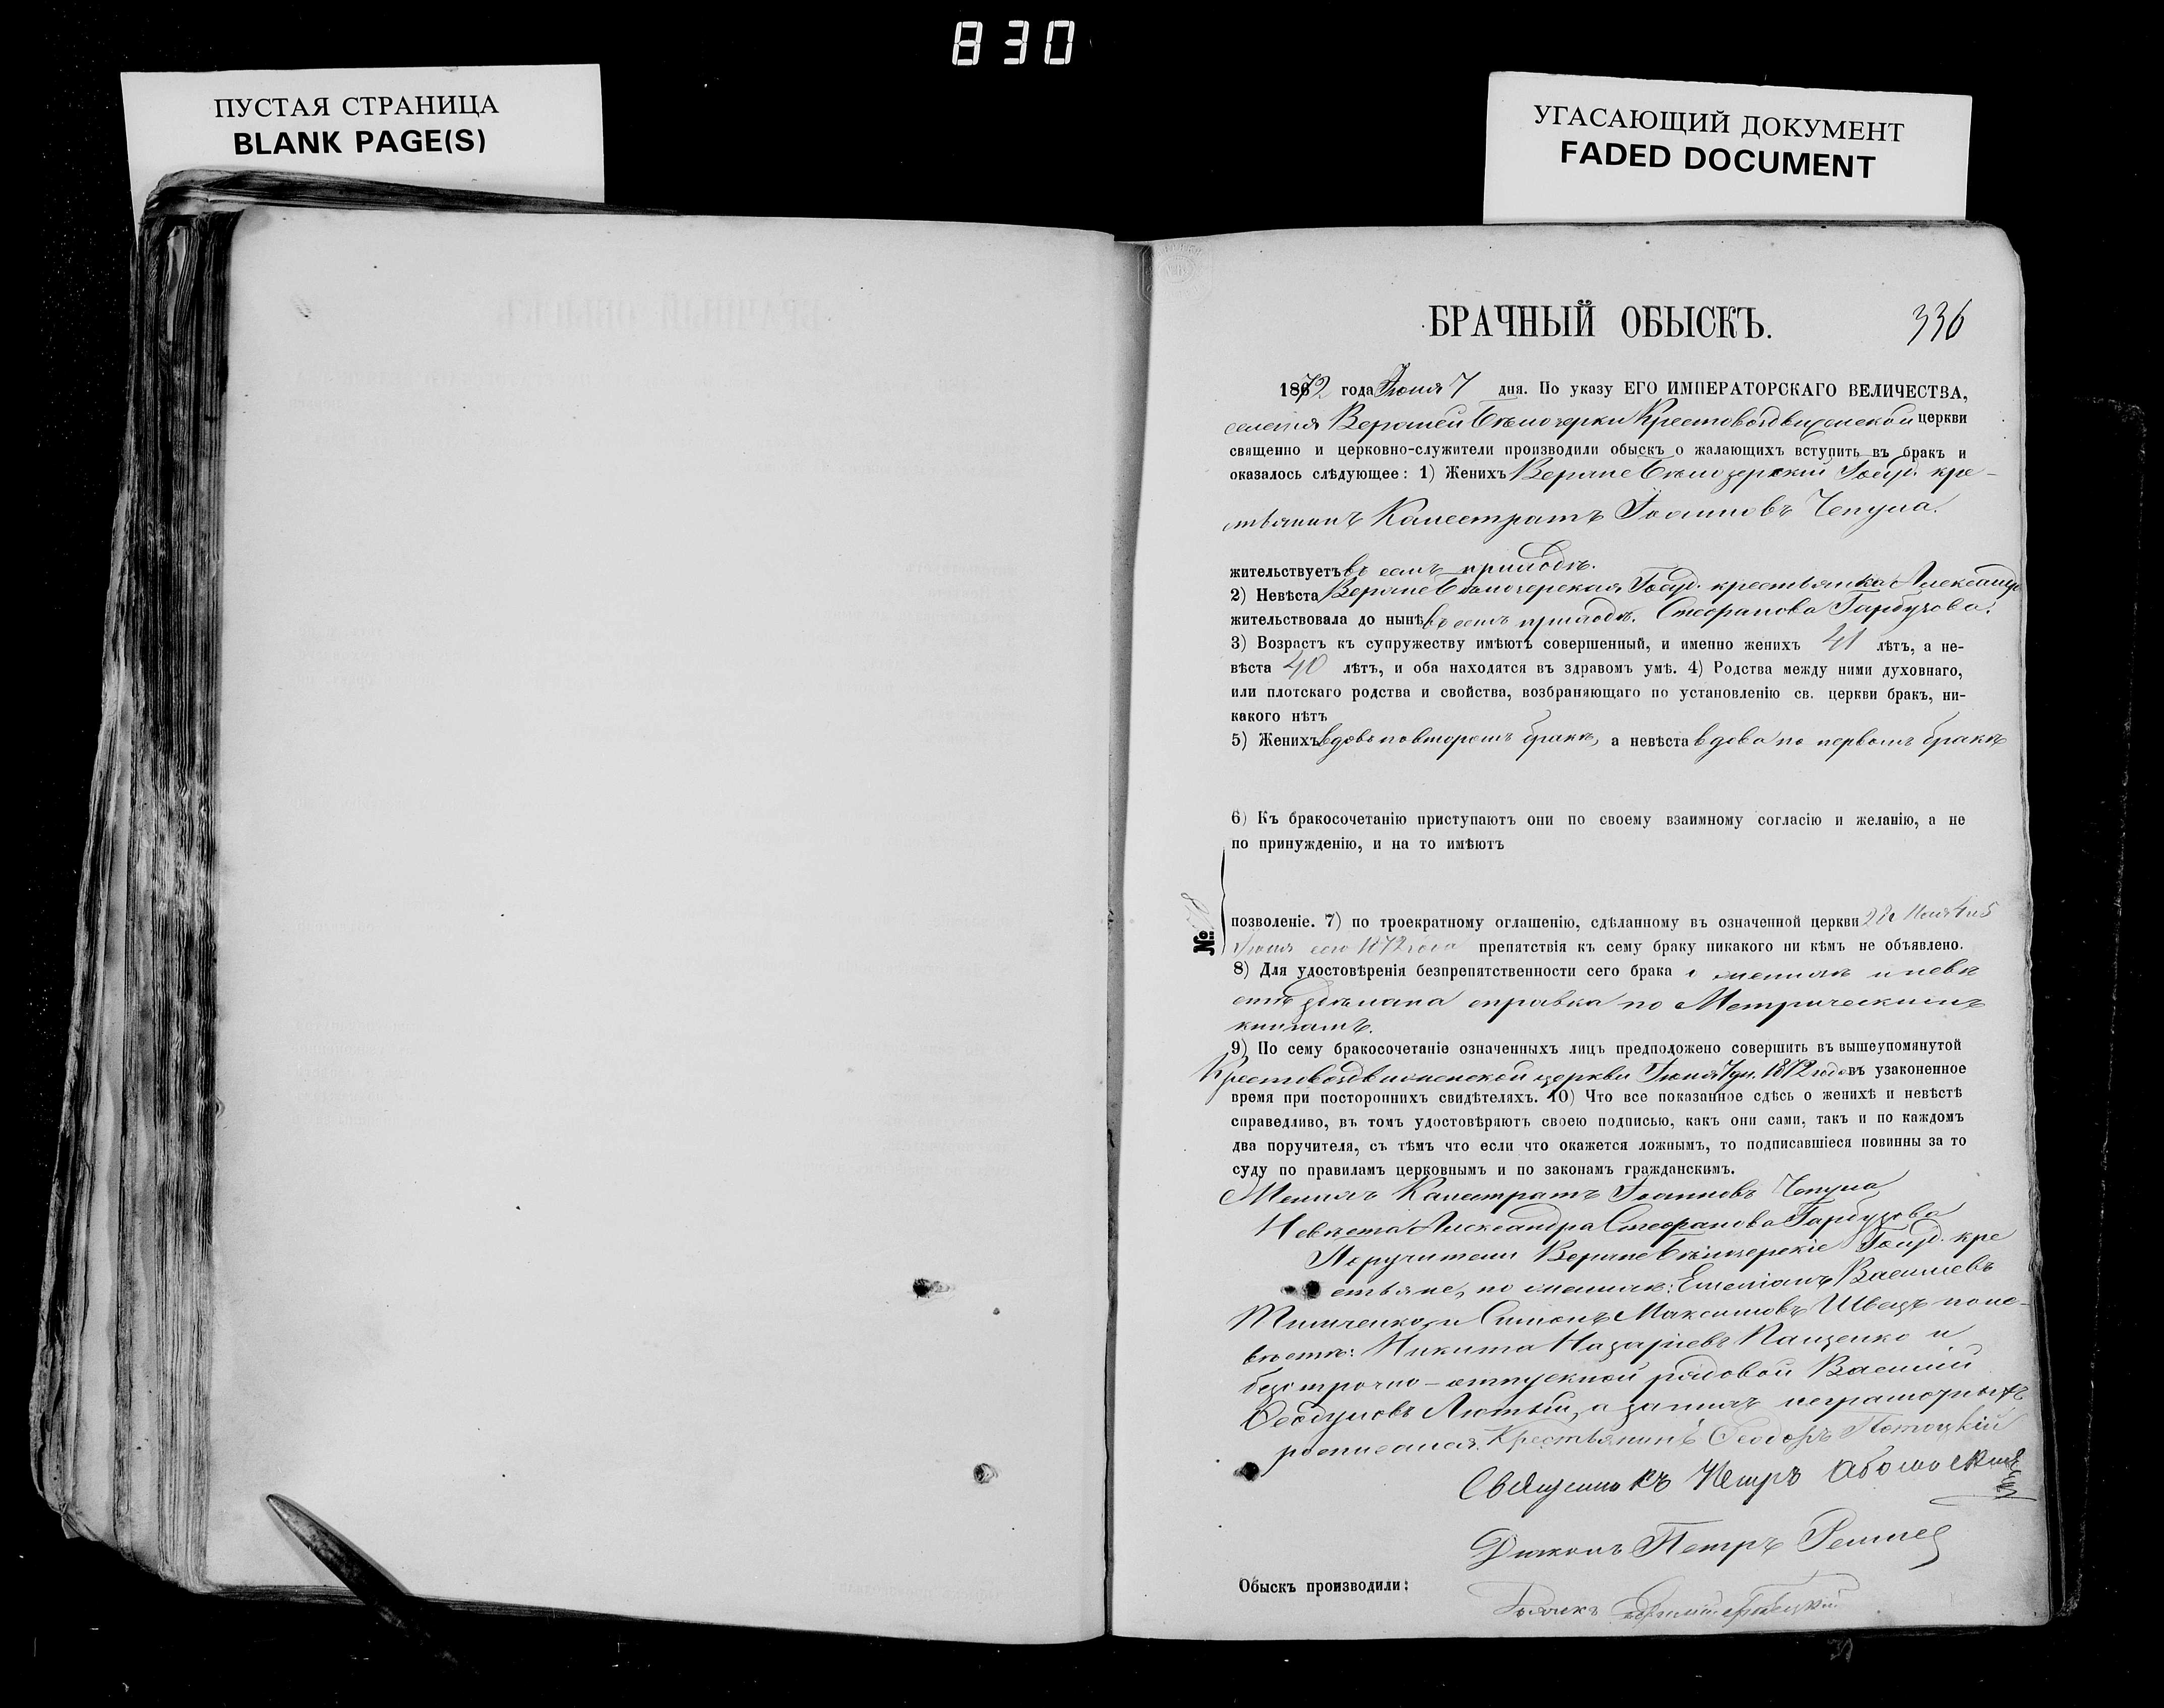 830
ПУСТАЯ СТРАНИЦА
BLANK PAGE(S)
УГАСАЮЩИЙ ДОКУМЕНТ
FADED DOCUMENT
БРАЧНЫЙ ОБЫСКЪ.
336
1872 года Іюня 7 дня. По указу ЕГО ИМПЕРАТОРСКАГО ВЕЛИЧЕСТВА,
селенія Верхней Бѣлозерки Крестовоздвиженской церкви
священно и церковно-служители производили обыскъ о жалающихъ вступить въ бракъ и
оказалось слѣдующее: 1) Женихъ Верхне Бѣлозерскій Госуд. кре-
стьянинъ Калестратъ Іоанновъ Чепула.
жительствуетъ въ семъ приходѣ.
2) Невѣста Верхне Бѣлозерская Госуд. крестьянка Александра
жительствовала до нынѣ въ семъ приходѣ. Стефанова Гарбузова.
3) Возрастъ къ супружеству имѣютъ совершенный, и именно женихъ 41 лѣтъ, а не-
вѣста 40 лѣтъ, и оба находятся въ здравомъ умѣ. 4) Родства между ними духовнаго,
или плотскаго родства и свойства, возбраняющаго по установленію св. церкви бракъ, ни-
какого нѣтъ
5) Женихъ вдовъ по второмъ бракѣ, а невѣста вдова по первомъ бракѣ
6) Къ бракосочетанію приступаютъ они по своему взаимному согласію и желанію, а не
по принужденію, и на то имѣютъ
№
позволеніе. 7) по троекратному оглашенію, сдѣланному въ означенной церкви
Іюня сего 1872 года препятствія къ сему браку никакого ни кѣмъ не объявлено.
8) Для удостовѣренія безпрепятственности сего брака о женихѣ и невѣ
стѣ сдѣлана справка по Метрическимъ
книгамъ.
9) По сему бракосочетаніе означенныхъ лицъ предположено совершить въ вышеупомянутой
Крестовоздвиженской церкви Іюня 7 дн. 1872 года въ узаконенное
время при постороннихъ свидѣтеляхъ. 10) Что все показанное сдѣсь о женихѣ и невѣстѣ
справедливо, въ томъ удостовѣряютъ своею подписью, какъ они сами, такъ и по каждомъ
два поручителя, съ тѣмъ что если что окажется ложнымъ, то подписавшіеся повинны за то
суду по правиламъ церковнымъ и по законамъ гражданскимъ.
Женихъ Калестратъ Іоанновъ Чепула
Невѣста Александра Стефанова Гарбузова
Поручители Верхне Бѣлозерскіе Госуд. кре
стьяне, по женихѣ: Емеліанъ Васильевъ
Тимченко, и Симонъ Максимовъ Швецъ по не-
вѣстѣ: Никита Назаріевъ Пащенко и
безсрочно-отпускной рядовой Василій
Лютый, а за нихъ неграмотныхъ
росписался Крестьянинъ Ѳеодоръ Потоцкій
Священникъ Петръ
Діаконъ Петръ
Обыскъ производили: